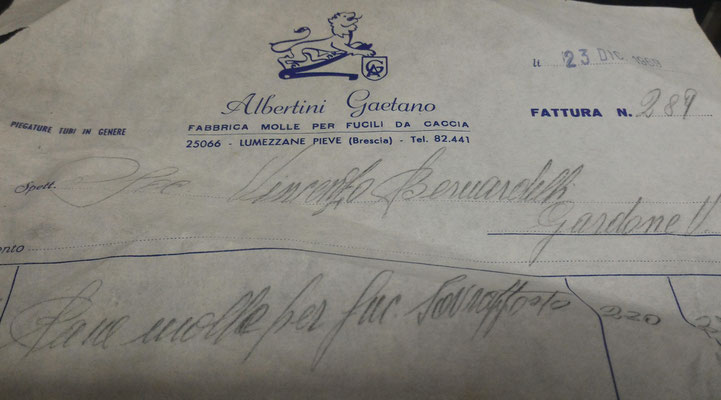 lì 23 DIC. 1969
Albertini Gaetano
FATTURA N. 289
PIEGATURE TUBI IN GENERE
FABBRICA MOLLE PER FUCILI DA CACCIA
25066 - LUMEZZANE PIEVE (Brescia) - Tel. 82.441
Spett. Vincenzo Bernardelli
Gardone V.
molle per fuc. Sovrapposto 220